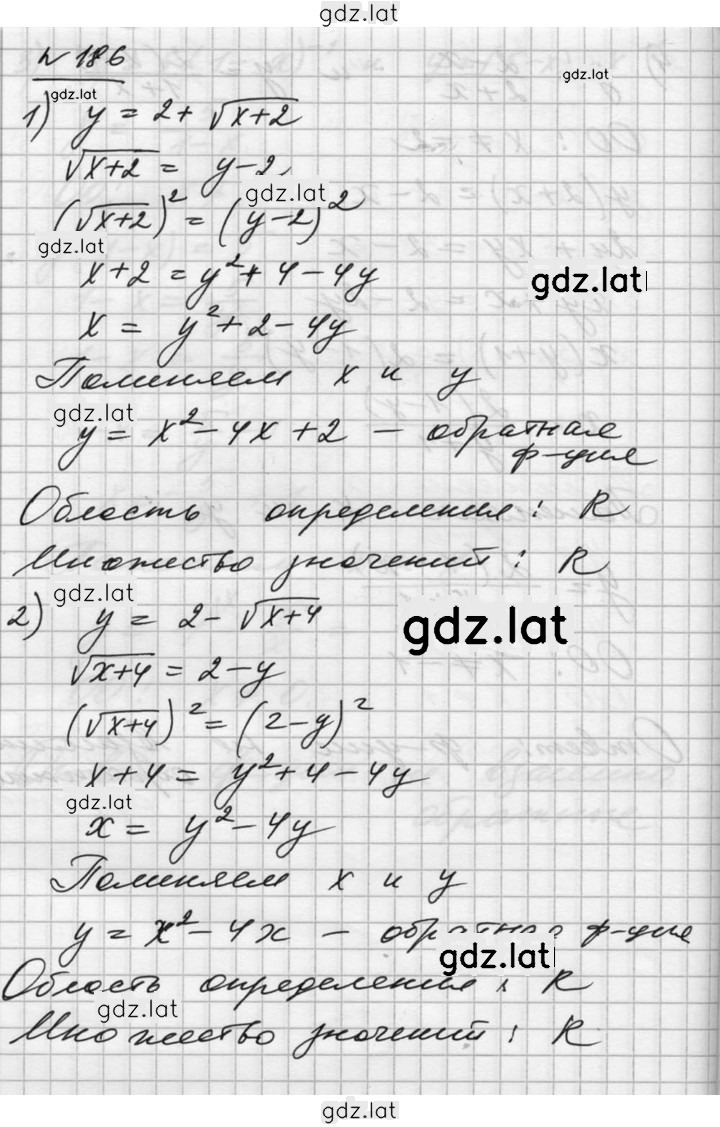 gdz.lat
№ 186
gdz.lat
gdz.lat
1) y = 2 + √(x+2)
√(x+2) = y-2
gdz.lat
(√(x+2))² = (y-2)²
gdz.lat
x+2 = y²+4-4y
gdz.lat
x = y²+2-4y
Поменяем x и y
gdz.lat
y = x²-4x+2 - обратная
ф-ция
Область определения: R
Множество значений: R
gdz.lat
2) y = 2-√(x+4)
gdz.lat
√(x+4) = 2-y
(√(x+4))² = (2-y)²
x+4 = y²+4-4y
gdz.lat
x = y²-4y
Поменяем x и y
y = x²-4x - обратная ф-ция
gdz.lat
Область определения: R
gdz.lat
Множество значений: R
gdz.lat